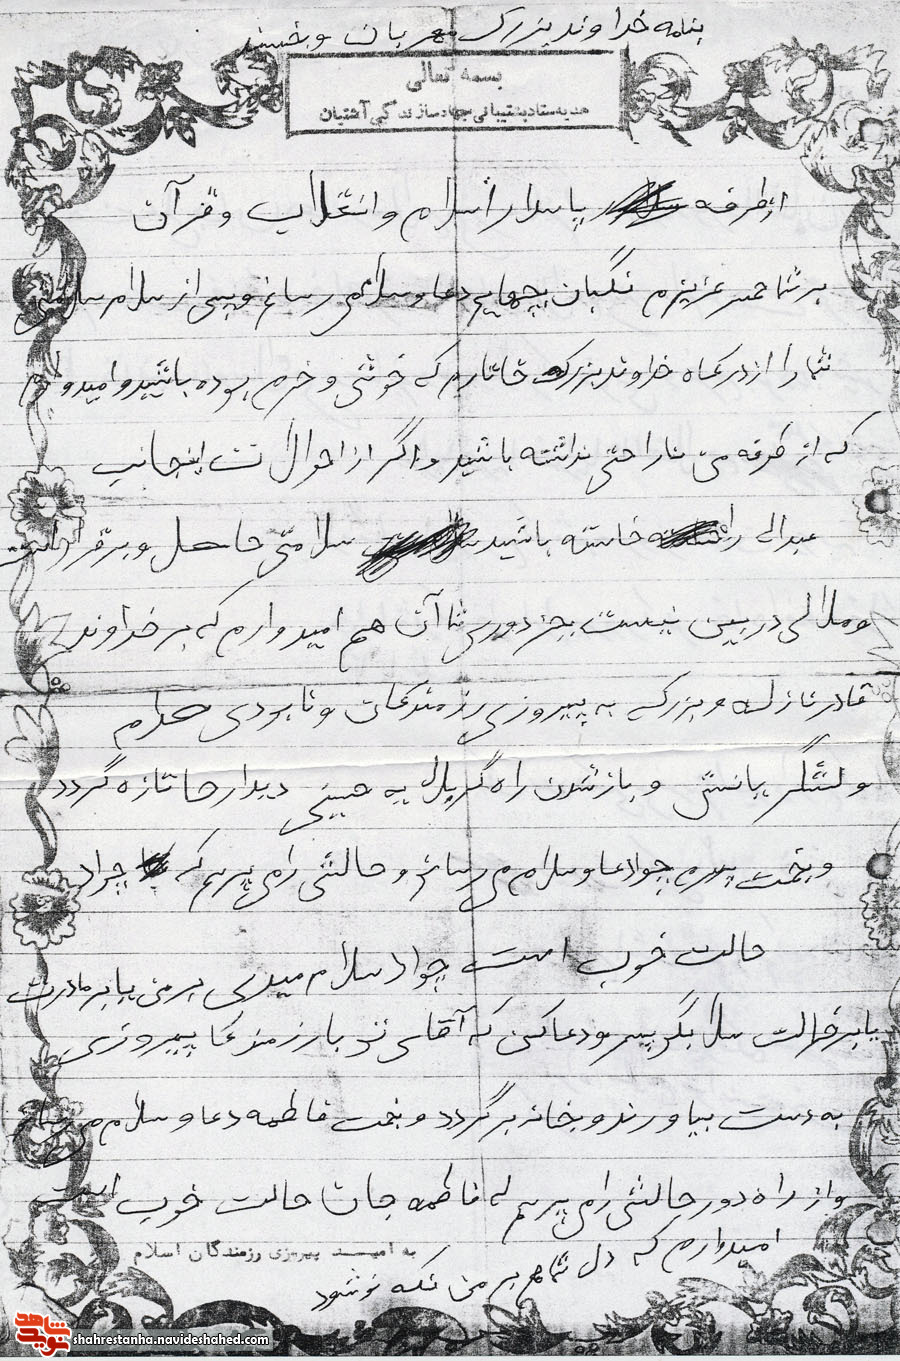 بنامه خداوند بزرگ مهربان و بخشنده
بسمه تعالی
هدیه ستاد پشتیبانی جهاد سازندگی آشتیان
از طرفه پاسدار اسلام و انقلاب و قرآن
بر شما همسر عزیزم نگهبان بچهایم دعا و سلام می رسانم و پس از سلام سلامتی
شما را از درگاه خداوند بزرگ خاتارم که خوش و خرم بوده باشید و امیدوارم
که از طرفه من ناراحتی نداشته باشید و اگر از احوالات اینجانب
عبدالی را خاسته باشید سلامتی حاصل و برقرار است
و ملالی در بین نیست بجز دوری شما آن هم امیدوارم که بر خداوند
قادر و بزرگ به پیروزی رزمندگان و نابودی صدام
و لشگریانش و باز شدن راه کربلا یه حسینی دیدارها تازه گردد
و بخمت پسرم جواد دعا و سلام می رسانم و حالش را می پرسم که جواد
حالت خوب است جواد سلام میدی بر من یا بر مادرت
یا بر خالت سلا بگو پسرم و دعا کن که آقای نو با رزمندگا پیروزی
به دست بیاورند و بخانه برگردد و بخمت فاطمه دعا و سلام می رسانم
و از راه دور حالش را می پرسم که فاطمه جان حالت خوب است
امیدوارم که دل شما هم بر من تنگ نشود
به امید پیروزی رزمندگان اسلام
نوید شاهد
shahrestanha.navideshahed.com